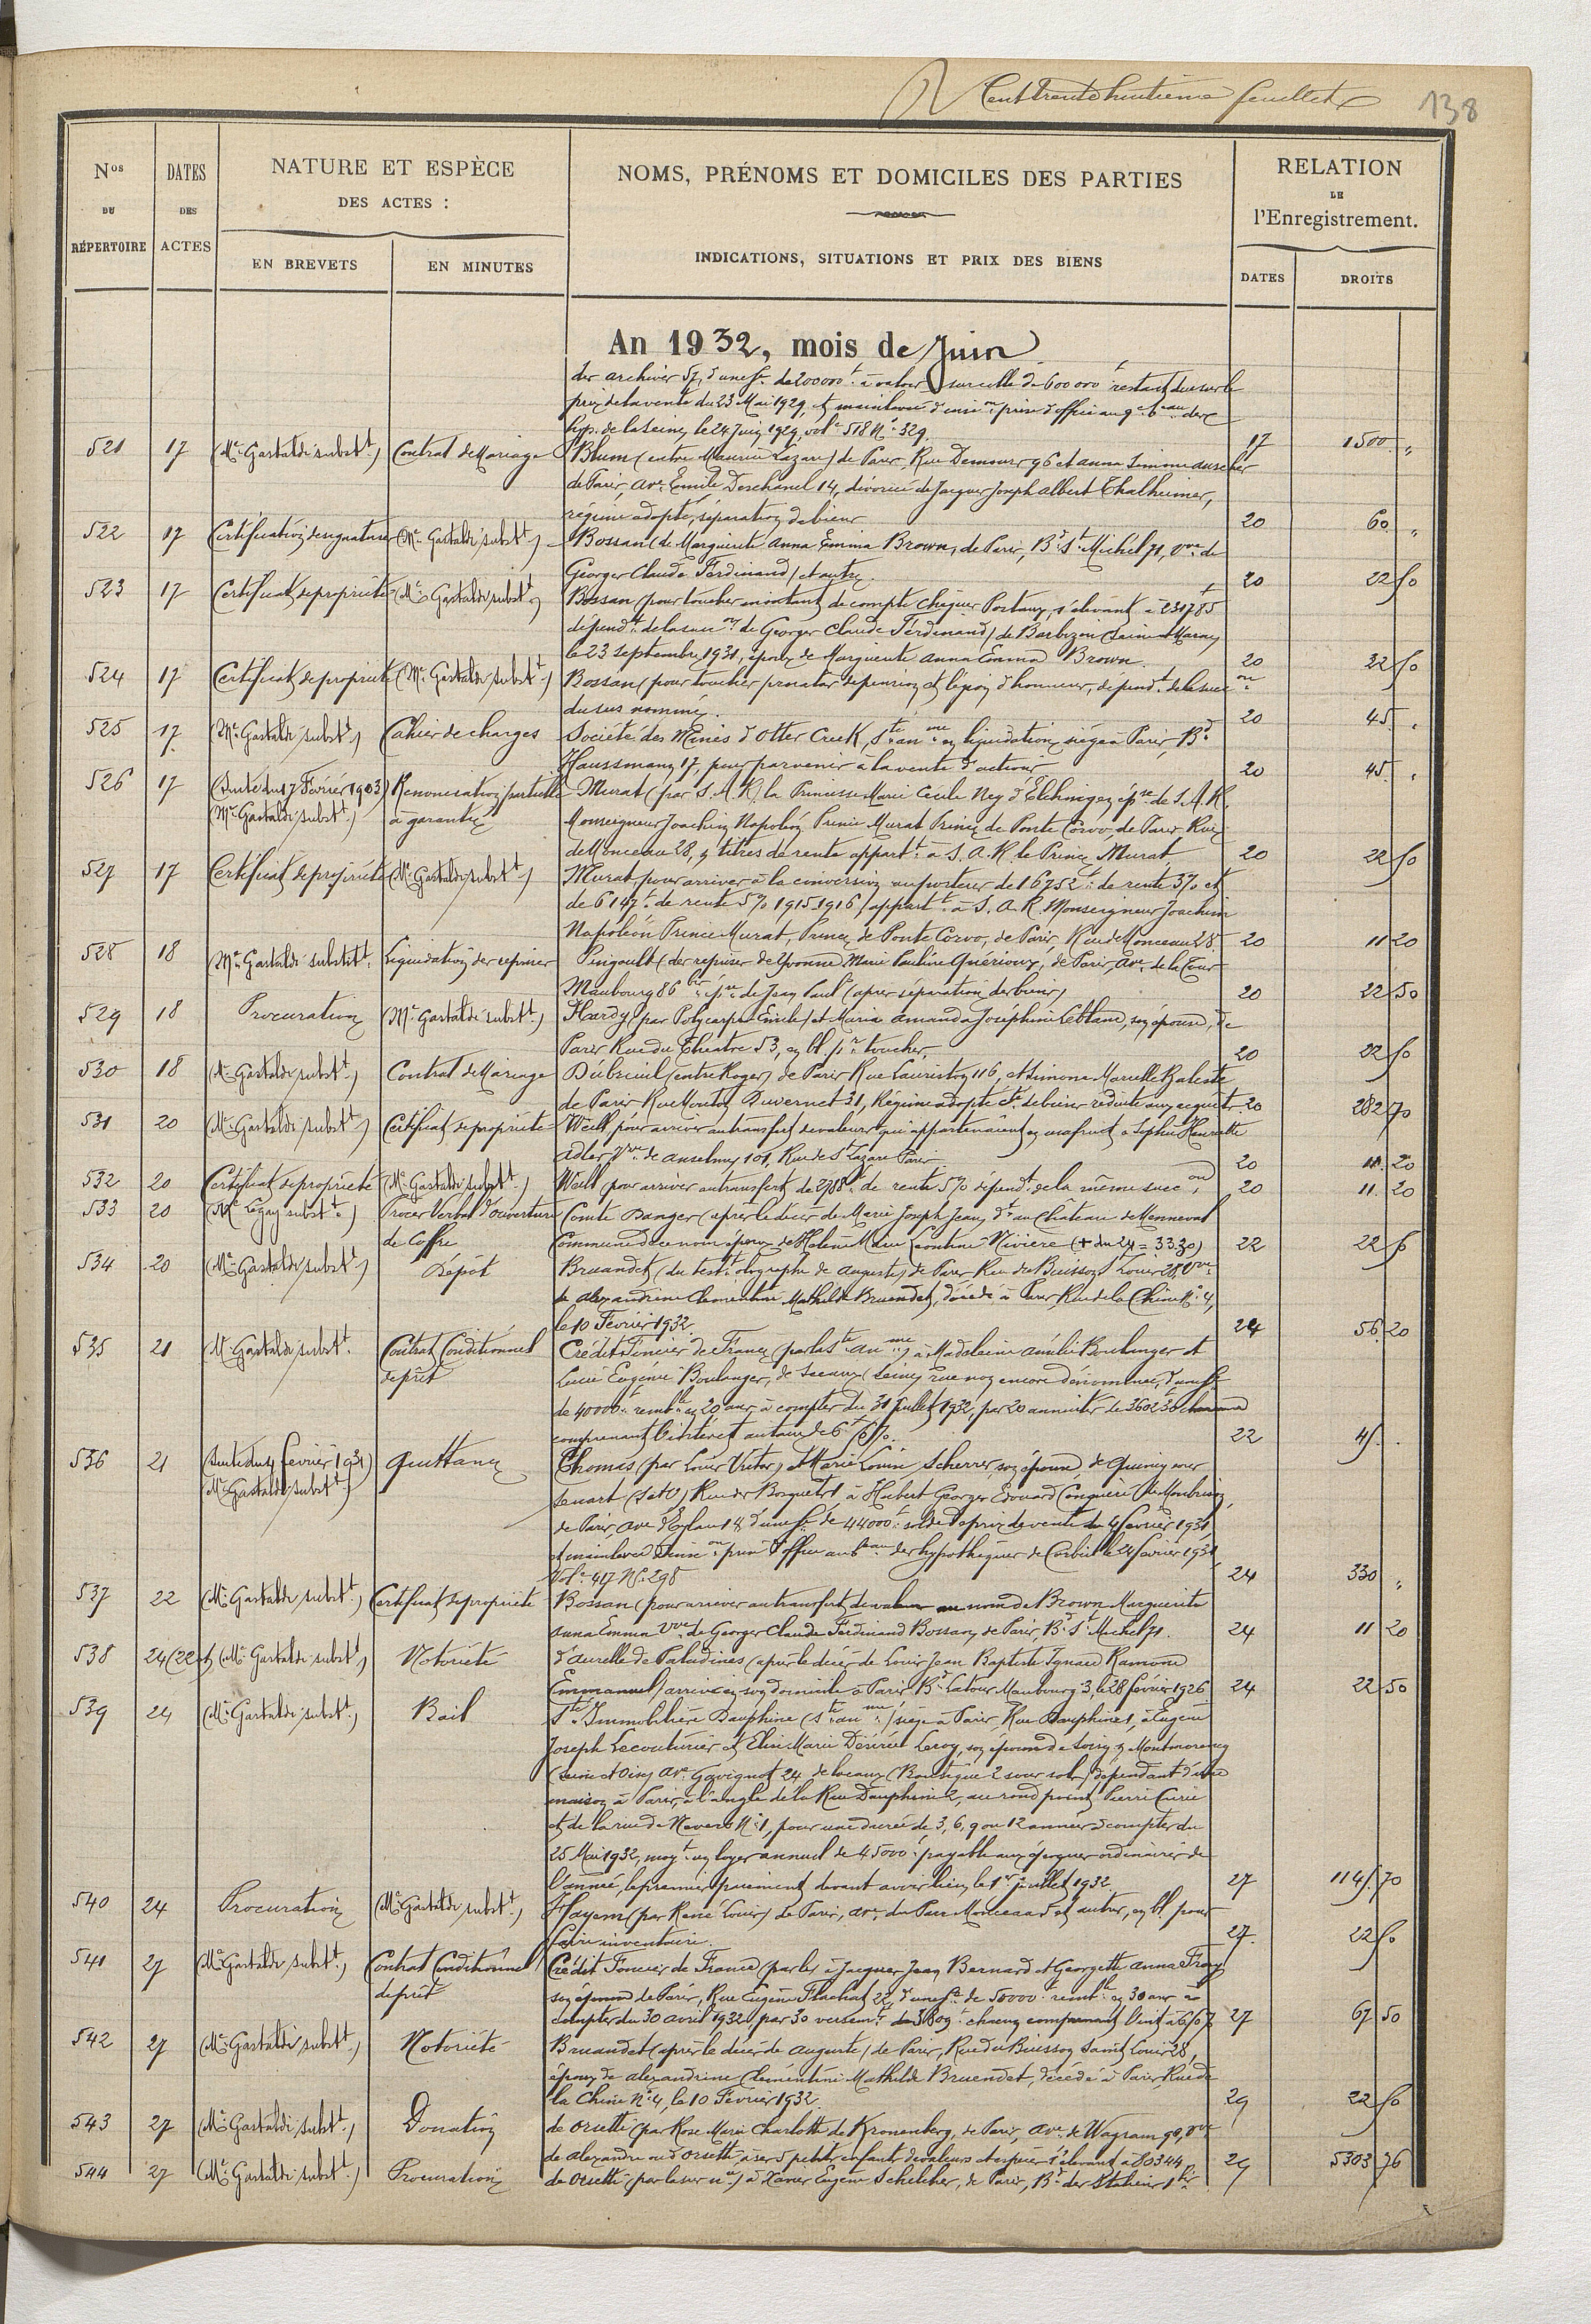 Cent trente huitième feuillet
138
Nos DU RÉPERTOIRE
DATES DES ACTES
NATURE ET ESPÈCE
DES ACTES :
EN BREVETS
EN MINUTES
NOMS, PRÉNOMS ET DOMICILES DES PARTIES
INDICATIONS, SITUATIONS ET PRIX DES BIENS
RELATION
DE
l'Enregistrement.
DATES
DROITS
An 1932, mois de Juin
des archives 57, d'une se de 200000 f. à valoir sur celle de 600 000 f restant due sur le
prix de la vente du 23 Mai 1929, et mainlevée d'inson prise d'office au 9e beau des
hyp. de la Seine, le 24 Juin 1929, vol. 518 No 329. 17 1500 "
521 17 (Me Gastaldi subst.) Contrat de Mariage Blum (entre Maurice Lazare) de Paris, Rue Demours 96 et Anna Simone
de Paris, Ave Emile Deschanel 14, divorcée de Jacques Joseph Albert Thalheimer,
régime adopté, séparation de biens 20 60 "
522 17 Certification de signature (Me Gastaldi subst.) Bossan (de Marguerite Anna Emma Brown, de Paris, Bd St Michel 71, vve de
Georges Claude Ferdinand) et autre. 20 22 50
523 17 Certificat de propriété (Me Gastaldi subst.) Bossan (pour toucher montant de compte chèques Postaux, s'élevant à 2317 85
dépendt de la succon de Georges Claude Ferdinand) de Barbizon (Seine et Marne)
le 23 septembre 1931, époux de Marguerite Anna Emma Brown. 20 22 50
524 17 Certificat de propriété (Me Gastaldi subst.) Bossan (pour toucher proratas de pension et légion d'honneur, dépendt de la succon
du sus nommé. 20 45 "
525 17 (Me Gastaldi subst.) Cahier de charges Société des Mines d'Otter Creek, Sté anme en liquidation, siège à Paris, Bd
Haussmann 17, pour parvenir à la vente d'actions 20 45 "
526 17 (Suite du 17 Février 1903) (Me Gastaldi subst.) Renonciation partielle à garantie Murat (par S. A. R. la Princesse Marie Cécile Ney d'Elchingen épse de S. A. R.
Monseigneur Joachim Napoléon Prince Murat Prince de Ponte Corvo, de Paris, Rue
de Monceau 28, à titres de rente appartt à S. A. R. le Prince Murat. 20 22 50
527 17 Certificat de propriété (Me Gastaldi subst.) Murat, pour arriver à la conversion au porteur de 16752 f. de rente 3% et
de 6147 f. de rente 5% 1915.1916, appartt à S. A. R. Monseigneur Joachim
Napoléon Prince Murat, Prince de Ponte Corvo, de Paris, Rue de Monceau 28. 20 11 20
528 18 (Me Gastaldi substit. Liquidation de reprises Pingault (des reprises de Yvonne Marie Pauline Quérioux, de Paris, Ave de la Tour
Maubourg 86 bis, épse de Jean Paul (après séparation de biens) 20 22 50
529 18 Procuration (Me Gastaldi subst.) Hardy (par Polycarpe Emile) et Maria Amanda Joséphine Leblanc, son épouse, de
Paris Rue du Théâtre 53, en bl. pr toucher. 20 22 50
530 18 (Me Gastaldi subst.) Contrat de Mariage Dubreuil (entre Roger) de Paris Rue Lauriston 116, et Simone Marcelle Baleste
de Paris Rue Mouton Duvernet 31, Régime adopté cté de biens réduite aux acquêts. 20 282 70
531 20 (Me Gastaldi subst.) Certificat de propriété Weill pour arriver au transfert de valeurs qui appartenaient en usufruit à Sophie Henriette
Adler, Vve de Anselme 101, Rue de St Lazare Paris 20 11 20
532 20 Certificat de propriété (Me Gastaldi subst.) Weill pour arriver au transfert de 2788 f. de rente 5% dépendt de la même succon. 20 11 20
533 20 (Me Legay subst.) Procès Verbal d'ouverture de Coffre Comte Danger (après le décès de Marie Joseph Jean, dt au Château de Menneval
Commune de ce nom époux de Hélène Marie Léontine Rivière (+ du 24 = 33.30) 22 22 50
534 20 (Me Gastaldi subst.) Dépôt Bruandet (du testt olographe de Auguste) de Paris Rue du Buisson St Louis 28, Vve
de Alexandrine Clémentine Mathilde Bruendet, décédé à Paris Rue de la Chine No 4,
le 10 Février 1932 24 56 20
535 21 Me Gastaldi subst. Contrat Conditionnel de prêt Crédit Foncier de France (par la Sté anme) à Madeleine Amélie Boulanger et
Lucie Eugénie Boulanger, de Sceaux (Seine) rue non encore dénommée, d'une se
de 40000 f. rembble en 20 ans, à compter du 31 Juillet 1932, par 20 annuités de 3602 30 chacune
comprenant l'intérêt au taux de 6 %. 22 45 "
536 21 (Suite du 4 février 1931) (Me Gastaldi subst.) Quittance Thomas (par Louis Victor) et Marie Louise Scherrer, son épouse, de Quincy sous
Senart (S et O) Rue des Bosquets 1 à Hubert Georges Edouard Conquéré de Monbrison,
de Paris, Ave d'Eylau 14, d'une se de 44000 f. solde de prix de vente du 4 février 1931,
et mainlevée d'inson prise d'office au beau des hypothèques de Corbeil le 21 février 1931
Vol. 417 No 298 24 330 "
537 22 (Me Gastaldi subst.) Certificat de propriété Bossan (pour arriver au transfert de valeurs au nom de Brown Marguerite
Anna Emma vve de Georges Claude Ferdinand Bossan, de Paris, Bd St Michel 71. 24 11 20
538 24 (22 et) (Me Gastaldi subst.) Notoriété d'Aurelle de Paladines (après le décès de Louis Jean Baptiste Ignace Ramond
Emmanuel) arrivé en son domicile à Paris Bd Latour Maubourg 3, le 28 février 1926 24 22 50
539 24 (Me Gastaldi subst.) Bail Sté Immobilière Dauphine (Sté anme) siège à Paris, Rue Dauphine 1, à Eugène
Joseph Lecouturier et Elise Marie Désirée Leroy, son épouse de Soisy s Montmorency
(Seine et Oise) Av. Gavignot 24 de locaux (Boutique 2 sous sols) dépendant d'une
maison à Paris, à l'angle de la Rue Dauphine 2, au rond point Pierre Curie
et de la rue de Nevers No 1, pour une durée de 3, 6, 9 ou 12 années à compter du
25 Mai 1932, moyt un loyer annuel de 45000 f. payable aux époques ordinaires de
l'année, le premier paiement devant avoir lieu le 1er juillet 1932 27 1145 70
540 24 Procuration (Me Gastaldi subst.) Hayem (par René Louis) de Paris, ave du Parc Monceau 5 et autres, en bl. pour
faire inventaire. 27 22 50
541 27 (Me Gastaldi subst.) Contrat Conditionnel de prêt Crédit Foncier de France (par le) à Jacques Jean Bernard et Georgette Anna
son épouse de Paris, Rue Eugène Flachat 22, d'une se de 50000 f. rembble en 30 ans à
compter du 30 avril 1932, par 30 versemts de 3809 f. chacun comprenant l'int à 27 67 50
542 27 (Me Gastaldi subst.) Notoriété Bruandet (après le décès de Auguste) de Paris, Rue du Buisson Saint Louis 28,
époux de Alexandrine Clémentine Mathilde Bruendet, décédé à Paris, Rue de
la Chine No 4, le 10 Février 1932. 29 22 50
543 27 (Me Gastaldi subst.) Donation de Orsetti (par Rose Marie Charlotte de Kronenberg, de Paris, ave de Wagram 99, vve
de Alexandre ou d'Orsetti, à ses 5 petits enfants de valeurs et espèces s'élevant à 80344 29 5303 76
544 27 (Me Gastaldi subst.) Procuration de Orsetti (par le sus né) à Xavier Eugène Schelcher, de Paris, Bd des Italiens 1 bis